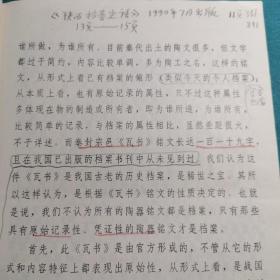 1990年7月出版
13页——15页
谁所做，为谁所有。目前秦代出土的陶文很多，但文字
都过于简约，内容比较单调，多为陶工之名，这样的铭
文，从形式上看已有档案的雏形（类似今天的个人档案），
从本质上看，也是原始的记录性文件。只不过这种属性
多体现在物的制造或所有者，即为谁所造，为谁所有。
比较简单的记录，与档案的属性相比，显然差距很大，
不予详述。而秦封宗邑《瓦书》铭文长达一百一十九字
且在我国已出版的档案书刊中从未见到过，我们认为这
件《瓦书》是我国古老的历史档案，是稀世之宝。其所
以这样认为，是根据《瓦书》铭文的性质决定的。也就
是说，我们不认为所有的陶器铭文都是档案，只有那些
具有原始记录性、凭证性的陶器铭文方是档案。
首先，此《瓦书》是由官方形成的，不管从它的形
式和内容特征上都表现出原始性，从形式上看，是战国